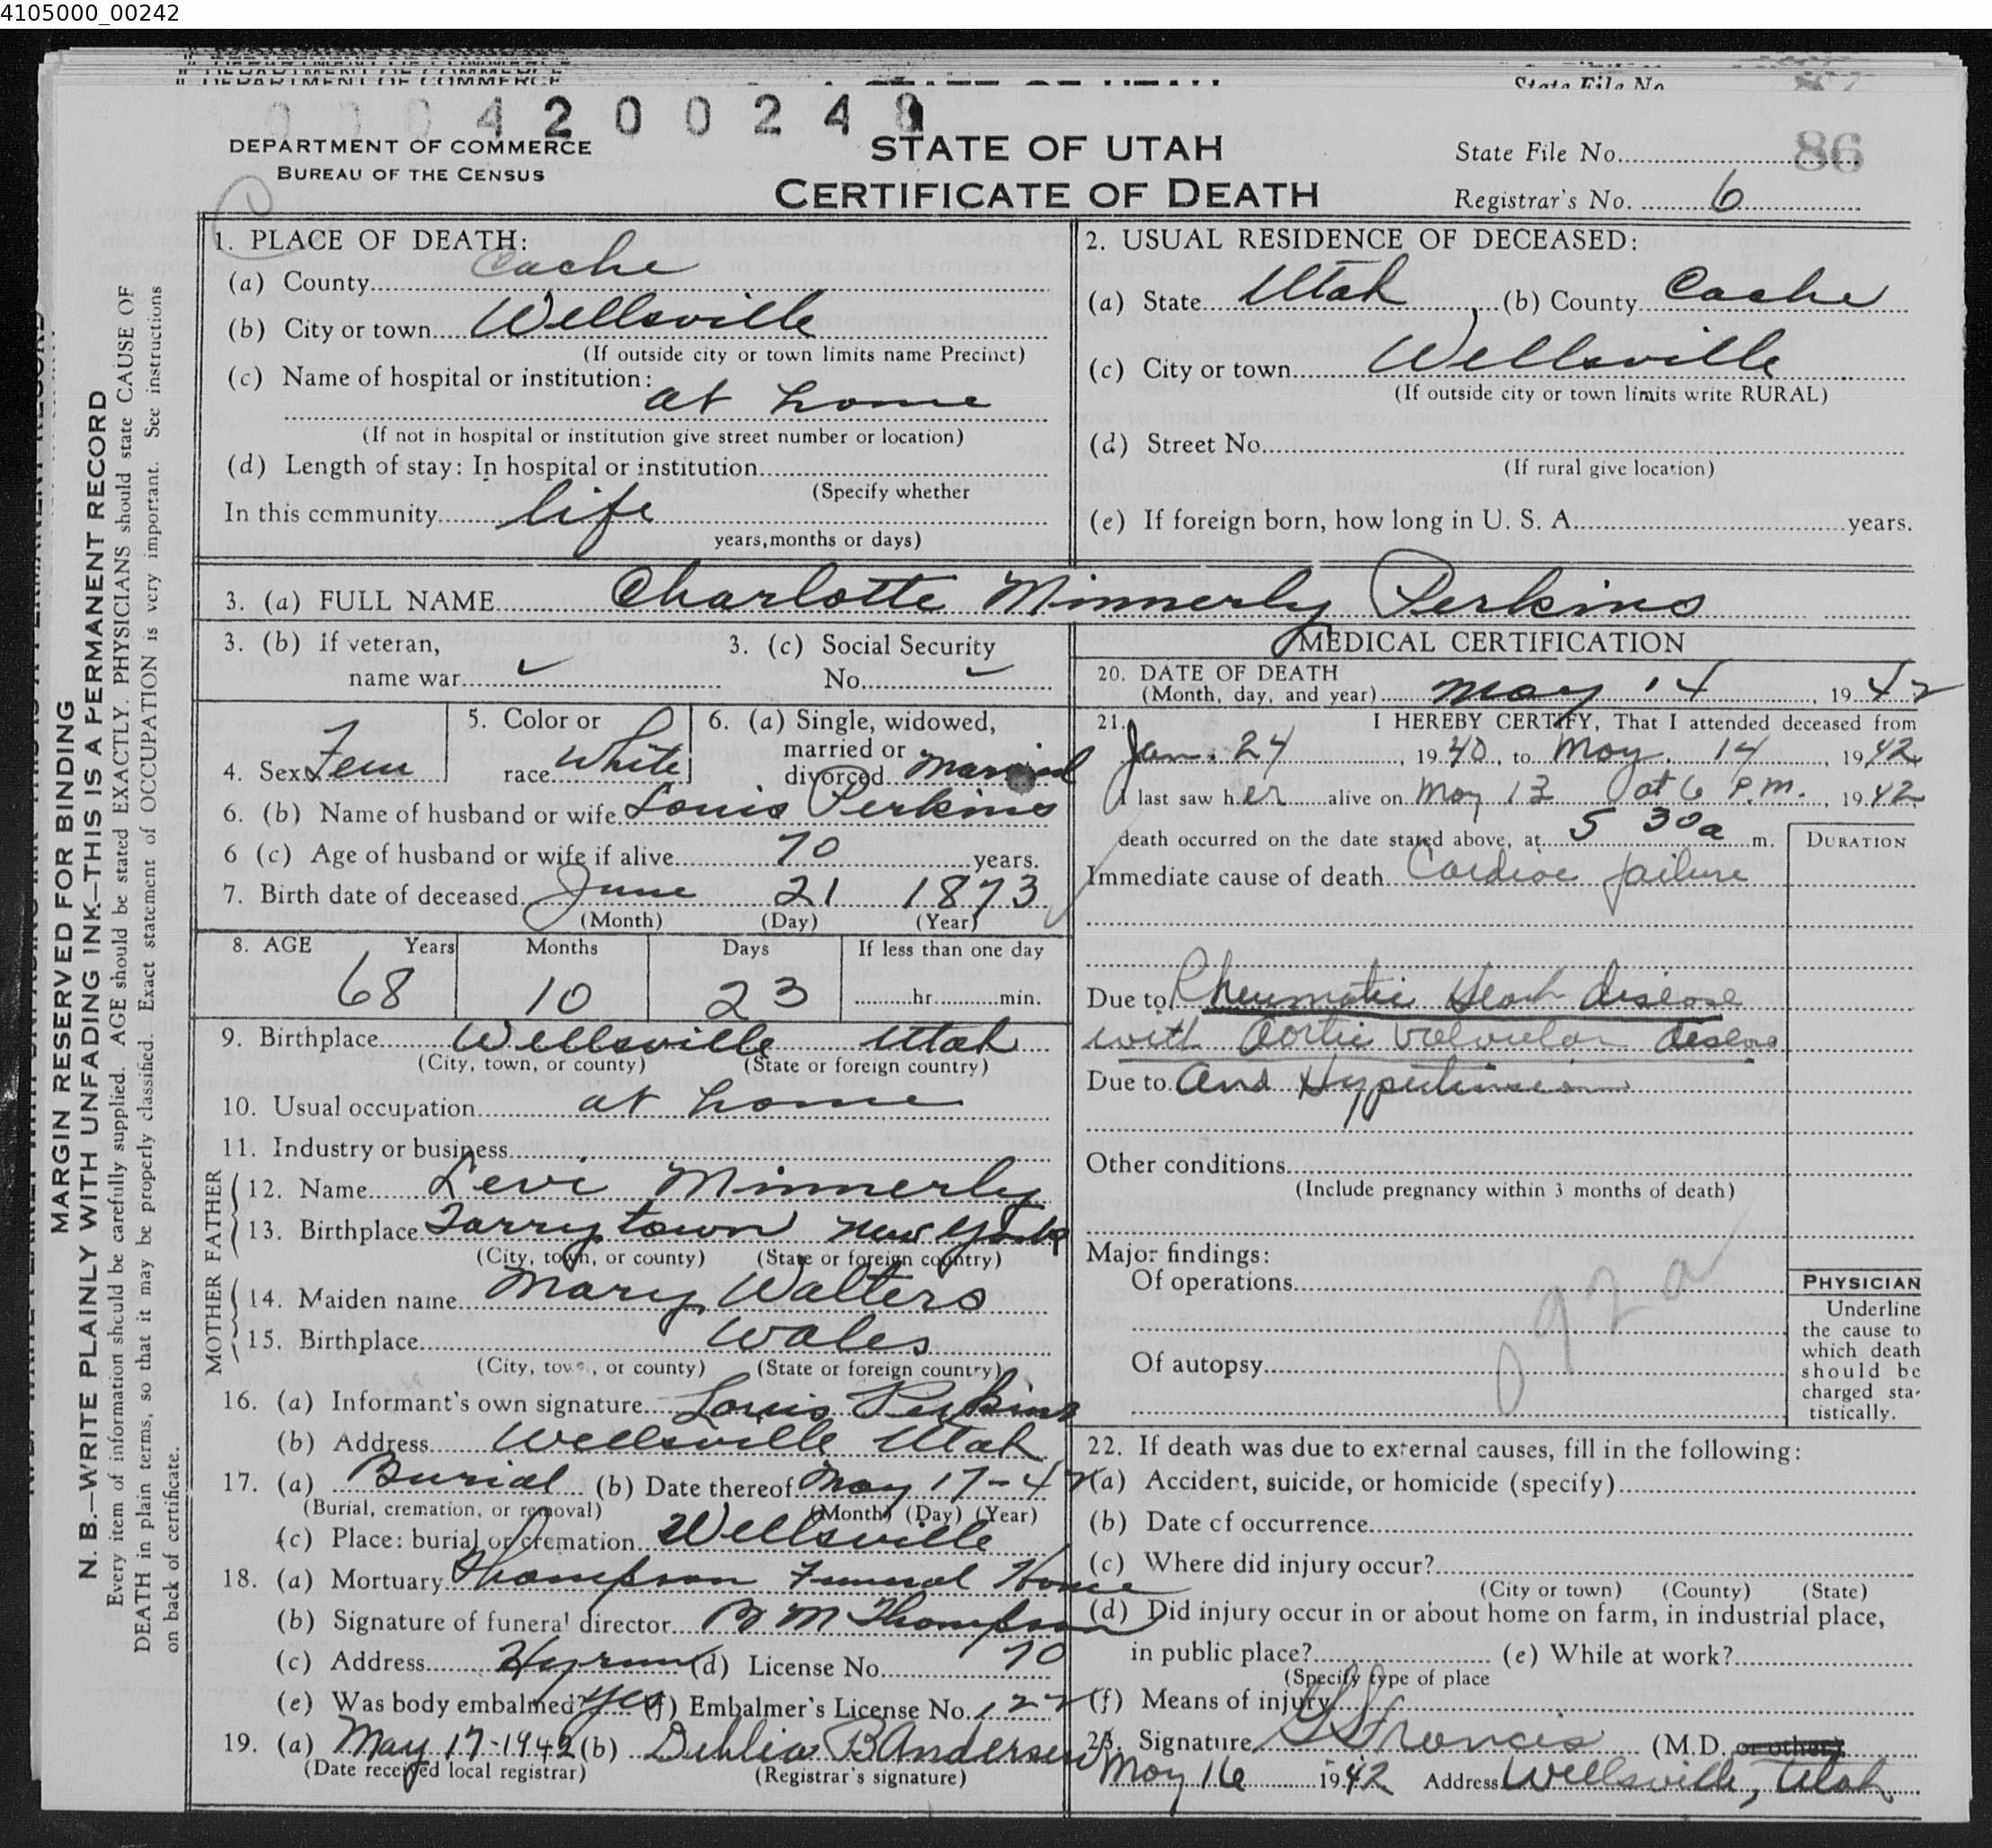 4105000_00242
DEPARTMENT OF COMMERCE
State File No.
4 2 0 0 2 4
DEPARTMENT OF COMMERCE
BUREAU OF THE CENSUS
STATE OF UTAH
CERTIFICATE OF DEATH
State File No. 86
Registrar's No. 6
MARGIN RESERVED FOR BINDING
N. B.—WRITE PLAINLY WITH UNFADING INK—THIS IS A PERMANENT RECORD
Every item of information should be carefully supplied. AGE should be stated EXACTLY. PHYSICIANS should state CAUSE OF
DEATH in plain terms, so that it may be properly classified. Exact statement of OCCUPATION is very important. See instructions
on back of certificate.
1. PLACE OF DEATH:
(a) County Cache
(b) City or town Wellsville
(If outside city or town limits name Precinct)
(c) Name of hospital or institution:
at home
(If not in hospital or institution give street number or location)
(d) Length of stay: In hospital or institution
(Specify whether
In this community life
years, months or days)
2. USUAL RESIDENCE OF DECEASED:
(a) State Utah (b) County Cache
(c) City or town Wellsville
(If outside city or town limits write RURAL)
(d) Street No.
(If rural give location)
(e) If foreign born, how long in U. S. A. years.
3. (a) FULL NAME Charlotte Minnerly Perkins
3. (b) If veteran,
name war
3. (c) Social Security
No.
4. Sex Fem
5. Color or
race White
6. (a) Single, widowed,
married or
divorced Married
6. (b) Name of husband or wife Louis Perkins
6 (c) Age of husband or wife if alive 70 years.
7. Birth date of deceased June 21 1873
(Month) (Day) (Year)
8. AGE Years Months Days If less than one day
68 10 23 hr. min.
9. Birthplace Wellsville Utah
(City, town, or county) (State or foreign country)
10. Usual occupation at home
11. Industry or business
FATHER
12. Name Levi Minnerly
13. Birthplace Tarrytown New York
(City, town, or county) (State or foreign country)
MOTHER
14. Maiden name Mary Walters
15. Birthplace Wales
(City, town, or county) (State or foreign country)
16. (a) Informant's own signature Louis Perkins
(b) Address Wellsville Utah
17. (a) Burial (b) Date thereof May 17-42
(Burial, cremation, or removal) (Month) (Day) (Year)
(c) Place: burial or cremation Wellsville
18. (a) Mortuary Thompson Funeral Home
(b) Signature of funeral director M Thompson
(c) Address Hyrum (d) License No. 70
(e) Was body embalmed? yes (f) Embalmer's License No. 122
19. (a) May 17-1942 (b) Dehlia B Andersen
(Date received local registrar) (Registrar's signature)
MEDICAL CERTIFICATION
20. DATE OF DEATH
(Month, day, and year) May 14, 1942
21. I HEREBY CERTIFY, That I attended deceased from
Jan. 24, 1940, to May. 14, 1942
I last saw her alive on May 13 at 6 P.M., 1942
death occurred on the date stated above, at 5 30a m.
DURATION
Immediate cause of death Cardiac failure
Due to Rheumatic Heart disease
with Aortic Valvular disease
Due to And Hypertension
Other conditions
(Include pregnancy within 3 months of death)
Major findings:
Of operations
Of autopsy
092a
PHYSICIAN
Underline
the cause to
which death
should be
charged sta-
tistically.
22. If death was due to external causes, fill in the following:
(a) Accident, suicide, or homicide (specify)
(b) Date of occurrence
(c) Where did injury occur?
(City or town) (County) (State)
(d) Did injury occur in or about home on farm, in industrial place,
in public place? (e) While at work?
(Specify type of place
(f) Means of injury
23. Signature Francis (M.D. or other)
May 16 1942 Address Wellsville, Utah